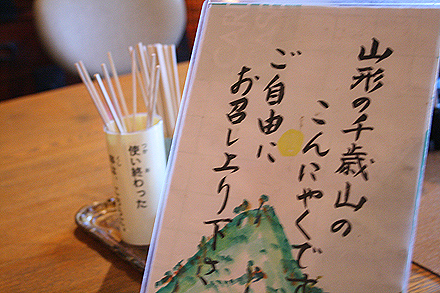 山形の千歳山の
こんにゃくです
ご自由に
お召し上り下さい
使い終わった